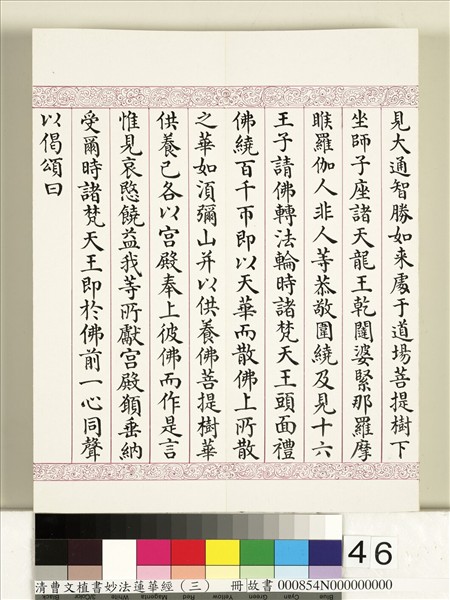 見大通智勝如來處于道場菩提樹下
坐師子座諸天龍王乾闥婆緊那羅摩
睺羅伽人非人等恭敬圍繞及見十六
王子請佛轉法輪時諸梵天王頭面禮
佛繞百千帀即以天華而散佛上所散
之華如湏彌山并以供養佛菩提樹華
供養已各以宮殿奉上彼佛而作是言
惟見哀愍饒益我等所獻宮殿願垂納
受爾時諸梵天王即於佛前一心同聲
以偈頌曰
46
清曹文植書妙法蓮華經（三） 冊 故書 000854N000000000
Black 3/Color White Magenta Red Yellow Green Cyan Blue